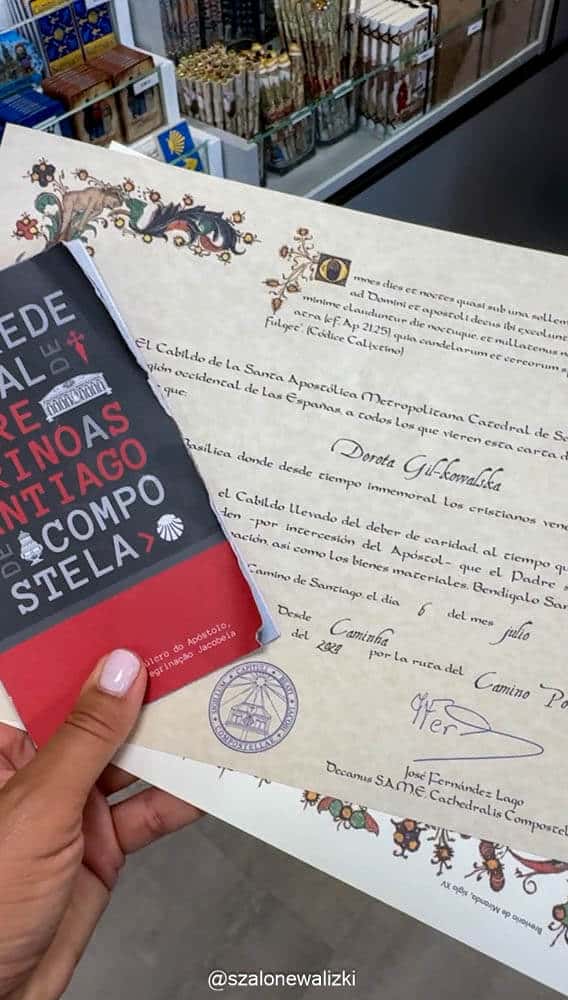 REDE
AL DE
RE
RINOAS
ANTIAGO
DE COMPO
STELA>
úlero do Apóstolo,
egrinação Jacobeia
Omnes dies et noctes quasi sub una sollem
ad Domini et apostoli decus ibi excolunt
minime clauduntur die noctuque, et nullatenus n
atra (cf. Ap 21,25) quia candelarum et cereorum sp
fulget". (Códice Calixtino)
El Cabildo de la Santa Apostólica Metropolitana Catedral de Sa
gión occidental de las Españas, a todos los que vieren esta carta d
que:
Dorota Gil-kowalska
Basílica donde desde tiempo inmemorial los cristianos vene
el Cabildo llevado del deber de caridad, al tiempo qu
den -por intercesión del Apóstol- que el Padre s
nación, así como los bienes materiales. Bendígalo San
Camino de Santiago, el día 6 del mes julio
Desde Caminha
del 2022 por la ruta del Camino Po
SIGILLUM CAPITULI BEATI IACOBI COMPOSTELLAE
José Fernández Lago
Decanus S.A.M.E. Cathedralis Compostel
Breviario de Miranda, siglo XV
@szalonewalizki